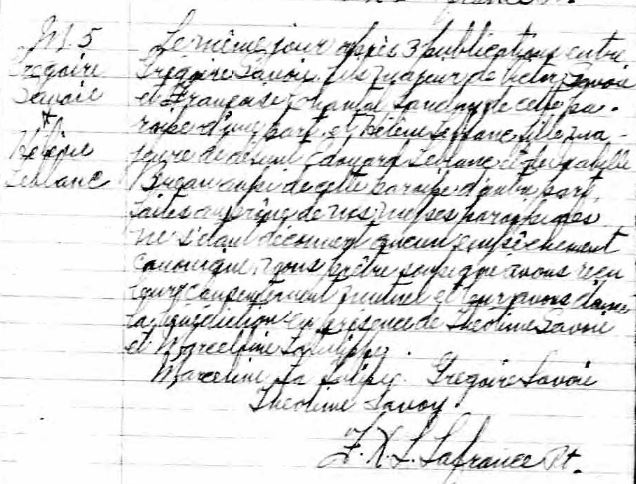 M. 5
Gregoire
Savoie
&
Hélène
Leblanc
Le même jour après 3 publications entre
Grégoire Savoie fils majeur de Victor Savoie
et Françoise Landry de cette pa-
roisse d'une part, et Hélène Leblanc fille ma-
jeure de defunt Edouard Leblanc et
aussi de cette paroisse d'autre part,
faites au prône de nos messes paroissiales
ne s'étant découvert aucun empêchement
canonique, nous prêtre soussigné avons reçu
leur consentement mutuel et leur avons donné
la bénédiction en présence de Théotime Savoie
et Marcelline
Marceline Grégoire Savoie
Théotime Savoy.
F. X. S. Lafrance Pt.